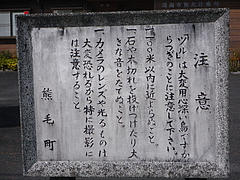 注意
ツルは大変用心深い鳥ですか
らつぎのことに注意して下さい。
一、一〇〇米以内に近よらぬこと。
一、石や木切れを投げつけたり大
きな音をたてぬこと。
一、カメラのレンズや光るものは
大変恐れるから特に撮影に
は注意すること。
熊毛町